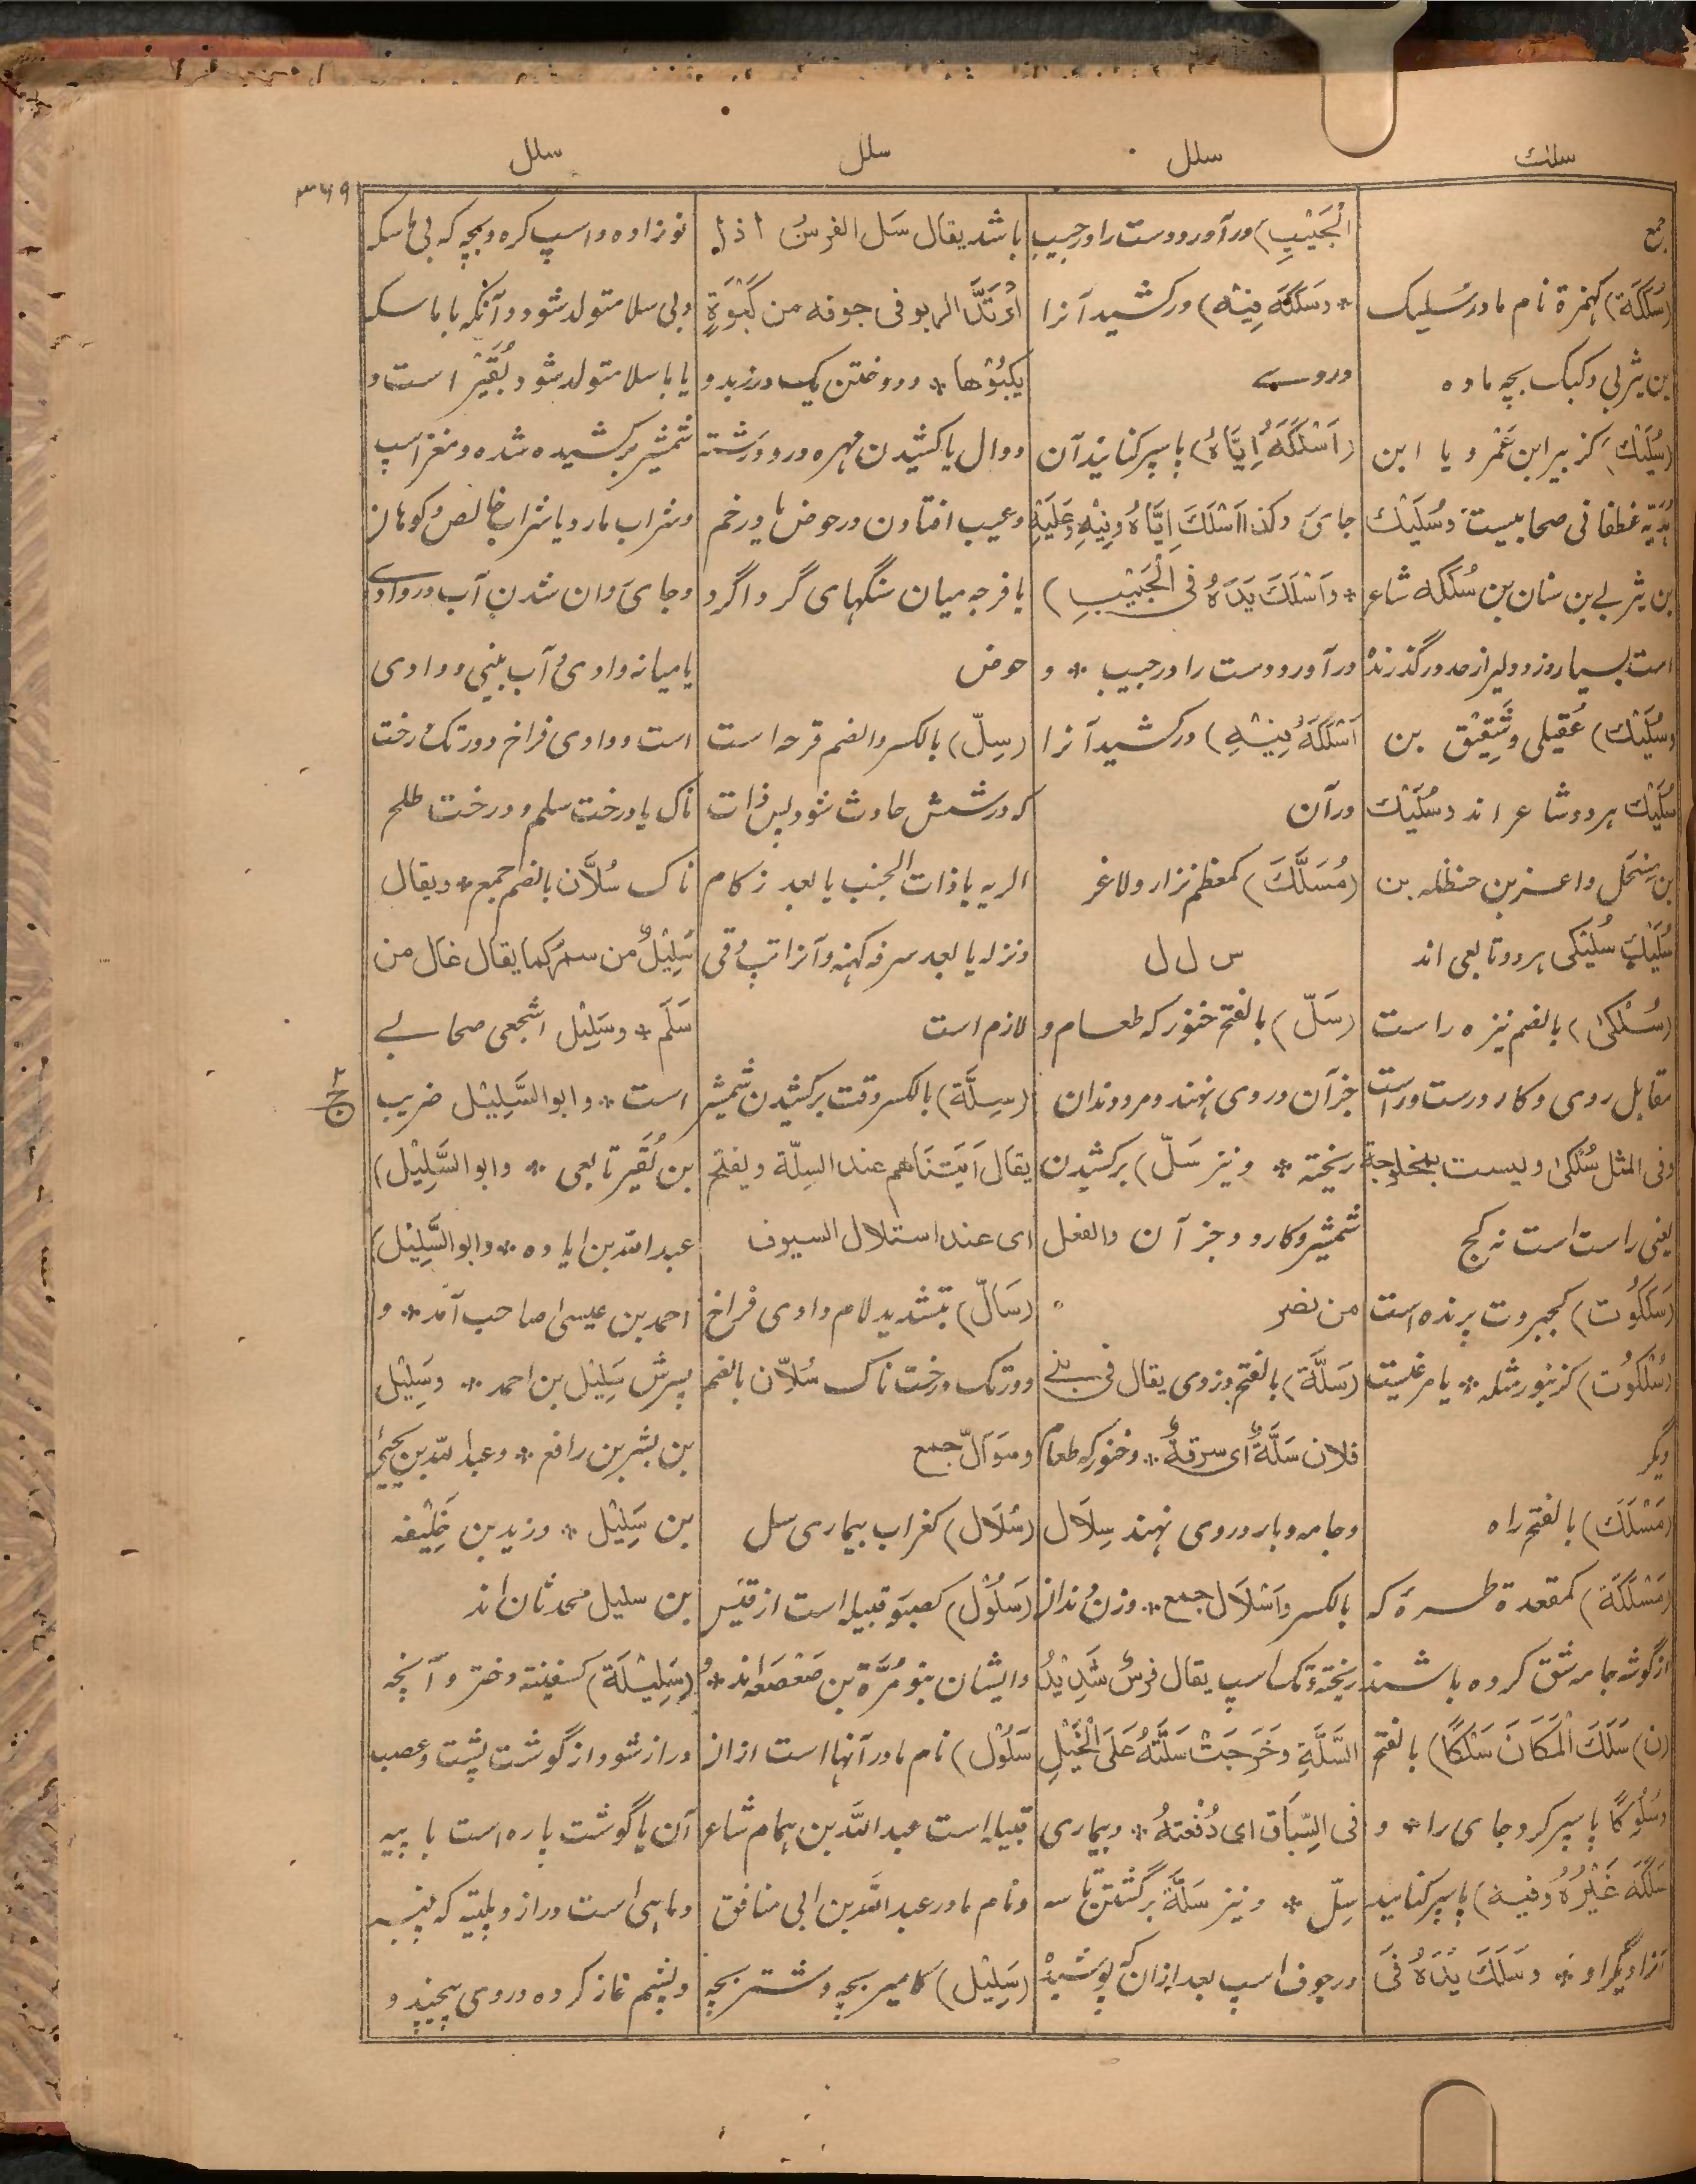 سلك
سلل
سلل
سلل
۳۶۹
جمع
(سُلَكَة) کهمزة نام مادر سُلیک
بن یثربی و کبک بچه ماده
(سُلَیْك) کزبیر ابن عَمْرو یا ابن
هُدَیّه غطفانی صحابیست وسُلَیْك
بن یثربے بن سنان بن سُلَکَه شاعر
است بسیار دزد و دلیر از حد درگذرنده
وسُلَیْك) عُقَیلی وشَقِیْق بن
سُلَیْك هر دو شاعر اند وسُلَیْك
بن مِسْحَل واغر بن حنظله بن
سُلَیْك سُلَیْکی هر دو تابعی اند
(سُلْکیٰ) بالضم نیزه راست
مقابل روی و کار درست وراست
وفی المثل سُلْکیٰ ولیست بمخلوجة
یعنی راست است نه کج
(سَلَکُوْت) کجبروت پرنده است
(سُلْکُوْت) کزنبور مثله * یا مرغیست
دیگر
(مَسْلَك) بالفتح راه
(مَسْلَکَة) کمقعدة طره که
از گوشه جامه شق کرده باشند
(ن) سَلَكَ الْمَکَانَ سَلْکًا) بالفتح
وسُلُوْکًا پا سپر کرد جای را * و
سَلَکَهٗ غَیْرُهٗ وَفِیْهِ) پاسپر کنانید
آنرا دیگر او * وسَلَكَ یَدَهٗ فی
الْجَیْبِ) درآورد دست را در جیب
* وسَلَکَهٗ فِیْهِ) درکشید آنرا
دروے
(اَسْلَکَهٗ اِیَّاهُ) پا سپر کنانید آن
جای وکذا اَسْلَكَ اِیَّاهُ وفِیْهِ وعَلَیْهِ
* واَسْلَكَ یَدَهٗ فی الْجَیْبِ)
درآورد دست را در جیب * و
اَسْلَکَهٗ فِیْهِ) درکشید آنرا
در آن
(مُسَلَّك) کمعظم نزار و لاغر
س ل ل
(سَلّ) بالفتح خنور که طعام و
جز آن در وی نهند و مرد دندان
ریخته * ونیز سَلّ) برکشیدن
شمشیر و کارد و جز آن والفعل
من نصر
(سَلَّة) بالفتح دزدی یقال فی بنی
فلان سَلَّةٌ ای سرقةٌ * و خنور که طعام
و جامه و بار در وی نهند سِلَال
بالکسر واَسْلَال جمع * وزن دندان
ریخته و تک اسپ یقال فرسٌ شَدِیْدُ
السَّلَّةِ وخَرَجَتْ سَلَّتُهٗ عَلَی الْخَیْلِ
فی السِّبَاقِ ای دُفْعَتُهٗ * و بیماری
سِلّ * ونیز سَلَّة برگشتن تاسه
در جوف اسپ بعد از آن که پوشیده
باشد یقال سَلّ الفرسُ اذا
اُرْتَدَّ الربو فی جوفه من کَبْوَةٍ
یکبُوْها * و دوختن یک درز بدو
دوال یا کشیدن مهره در دو رشته
وعیب افتادن در حوض یا در خم
یا فرجه میان سنگهای گرداگرد
حوض
(سِلّ) بالکسر والضم قرحه است
که در شش حادث شود پس ذات
الریه یا ذات الجنب یا بعد زکام
و نزله یا بعد سرفه کهنه و آنرا تپ دقی
لازم است
(سِلَّة) بالکسر وقت برکشیدن شمشیر
یقال اَتَیْنَاهم عند السِلّة ویفتح
ای عند استلال السیوف
(سَالّ) بتشدید لام وادی فراخ
ودرتک درخت ناک سُلّان بالضم
وسَوَالّ جمع
(سُلَال) کغراب بیماری سل
(سَلُوْل) کصبور قبیله است از قیس
وایشان بنو مُرَّة بن صَعْصَعه اند *
سَلُوْل) نام مادر آنها است از ان
قبیله است عبد الله بن همام شاعر
ونام مادر عبد الله بن ابی منافق
(سَلِیْل) کامیر بچه و شتر بچه
نوزاده و اسپ کره و بچه که بی ماسکه
وبی سلا متولد شود و آنکه با ماسکه
یا با سلا متولد شود بُقَیْر است و
شمشیر برکشیده شده و مغز اسپ
و شراب مارد یا شراب خالص و کوهان
و جای روان شدن آب در وادے
یا میانه وادی و آب بینی و وادی
است و وادی فراخ ودرتک درخت
ناک یا درخت سلم و درخت طلح
ناک سُلَّان بالضم جمع * ویقال
سَلِیْلٌ من سمُر کما یقال غال من
سَلَم * وسَلِیْل اشجعی صحابے
است * وابو السَّلِیْل ضریب
بن نُقَیر تابعی * وابو السَّلِیْل)
عبد الله بن ایاد ه * وابو السَّلِیْل)
احمد بن عیسی صاحب آمد * و
پسرش سَلِیْل بن احمد * وسَلِیْل
بن بشر بن رافع * وعبد الله بن یحییٰ
بن سَلِیْل * وزید بن خَلِیْفه
بن سلیل محدثان اند
(سَلِیْلَة) کسفینة دختر و آنچه
دراز شود از گوشت پشت و عصب
آن یا گوشت پاره است با پیه
وماهیئ است دراز و پلیته که پنبه
و پشم غاز کرده در وی پیچند و
ح